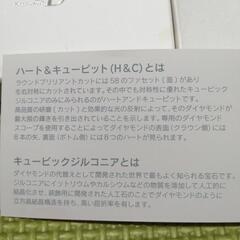 ハート&キューピット(H&C)とは
ラウンドブリリアントカットには58のファセット(面)があり
左右対称にカットされています。その中でも対称性に優れたキュービック
ジルコニアのみにみられるのがハートアンドキューピットです。
高品質の研磨(カット)と効果的な光の反射によって、そのダイヤモンドが
最大限の輝きを引き出されていることを示します。専用のダイヤモンド
スコープを使用することによってダイヤモンドの表面(クラウン側)には
8本の矢、裏面(ボトム側)には8つのハートが見られます。
キュービックジルコニアとは
ダイヤモンドの代替えとして開発された世界で最もよく知られる宝石です。
ジルコニアにイットリウムやカルシウムなどの物質を添加して人工的に
結晶化させ、装飾用に開発された人工石のことでダイヤモンドのように
立方晶結晶構造を持ち、高い屈折率を有します。